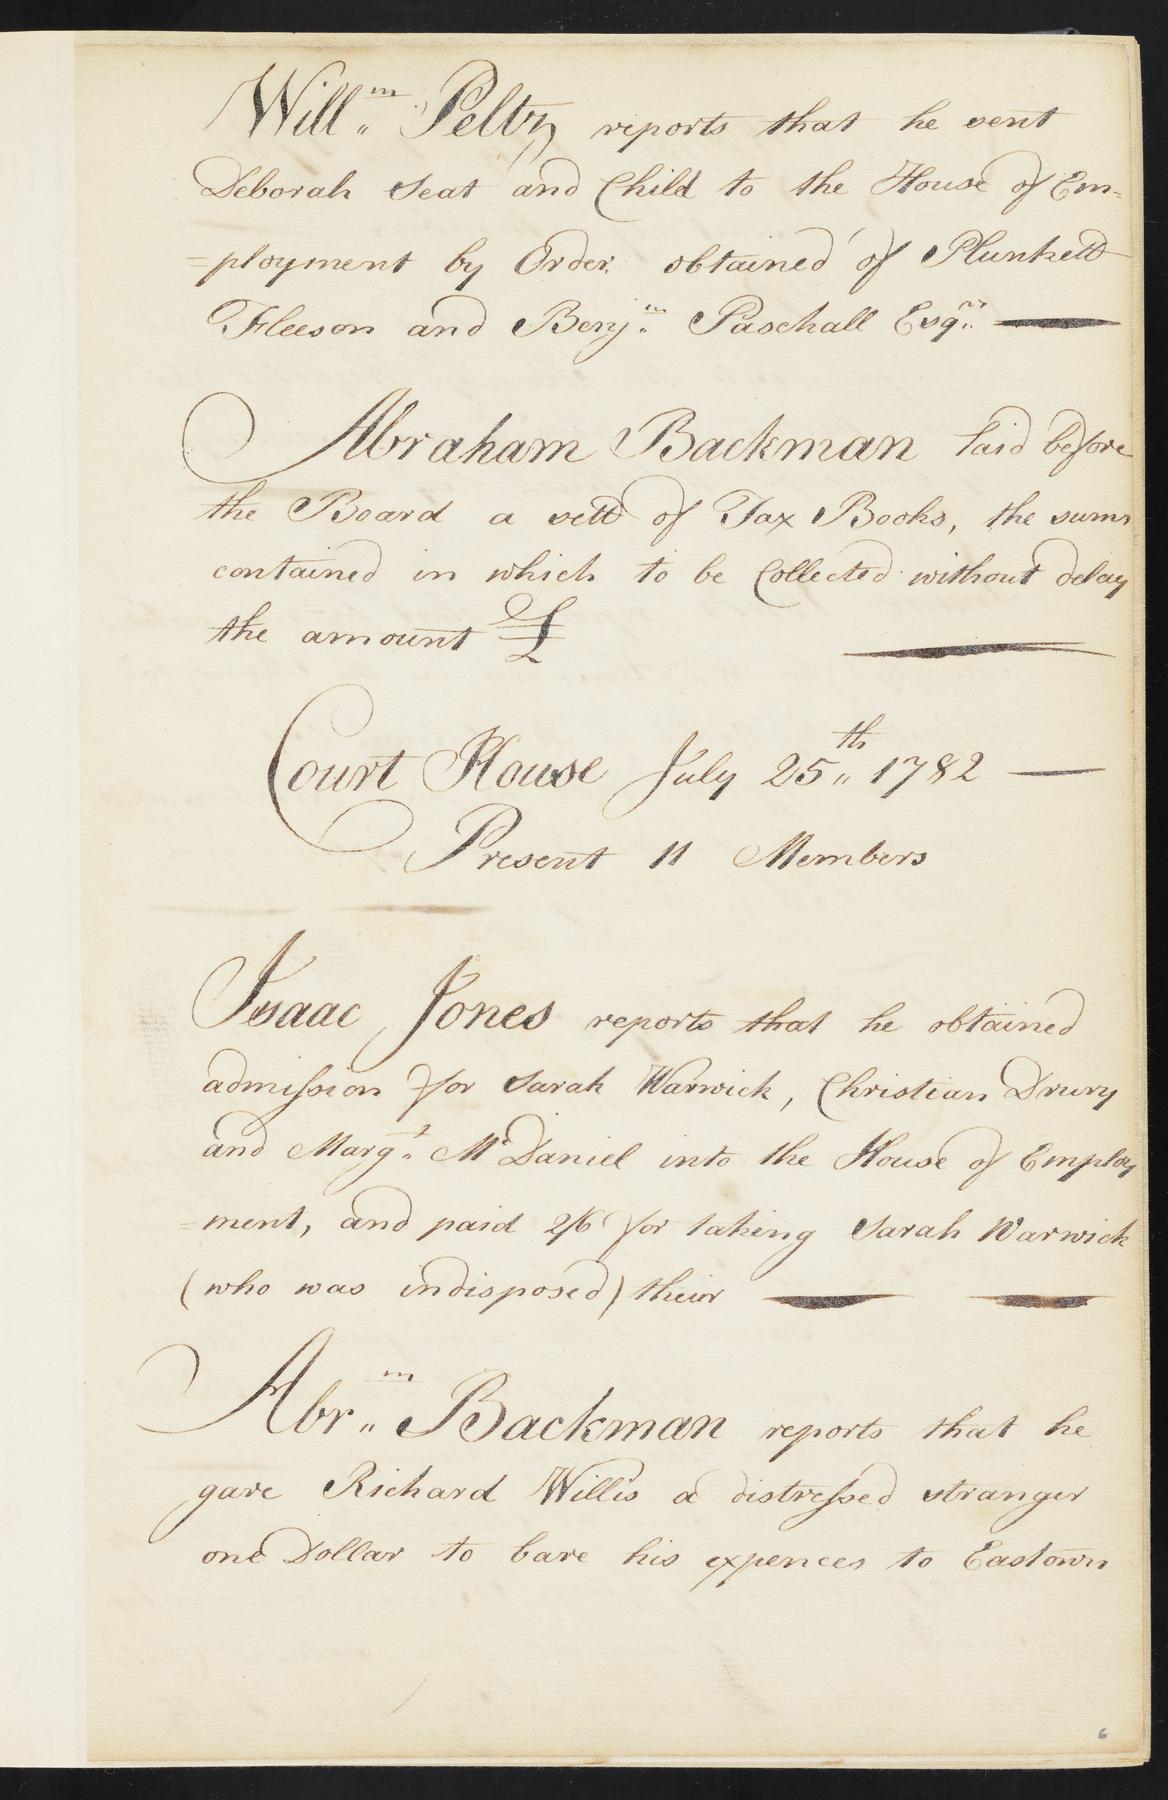 Will.m Peltz reports that he sent
Deborah Seat and Child to the House of Em=
=ployment by Order obtained of Plunkett
Fleeson and Benj.n Paschall Esq.rs
Abraham Backman laid before
the Board a sett of Tax Books, the sums
contained in which to be Collected without delay
the amount £
Court House July 25th 1782
Present 11 Members
Isaac Jones reports that he obtained
admission for Sarah Warwick, Christian Drury
and Marg.t McDaniel into the House of Employ
=ment, and paid 2/6 for taking Sarah Warwick
(who was indisposed) their
Abr.m Backman reports that he
gave Richard Willis a distressed stranger
one Dollar to bare his expences to Eastown
6